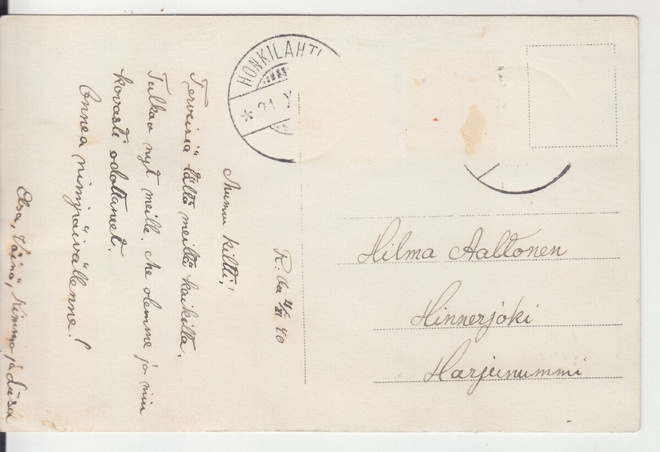 HONKILAHTI
* 21
Mummu kiltti!
Terveisiä tältä meiltä kaikilta.
Tulkaa nyt meille. Me olemme jo niin
kovasti odottaneet.
Onnea nimipäivällenne!
Elsa, Väinö, Kimmo ja Liisa
Hilma Aaltonen
Hinnerjoki
Harjunummi